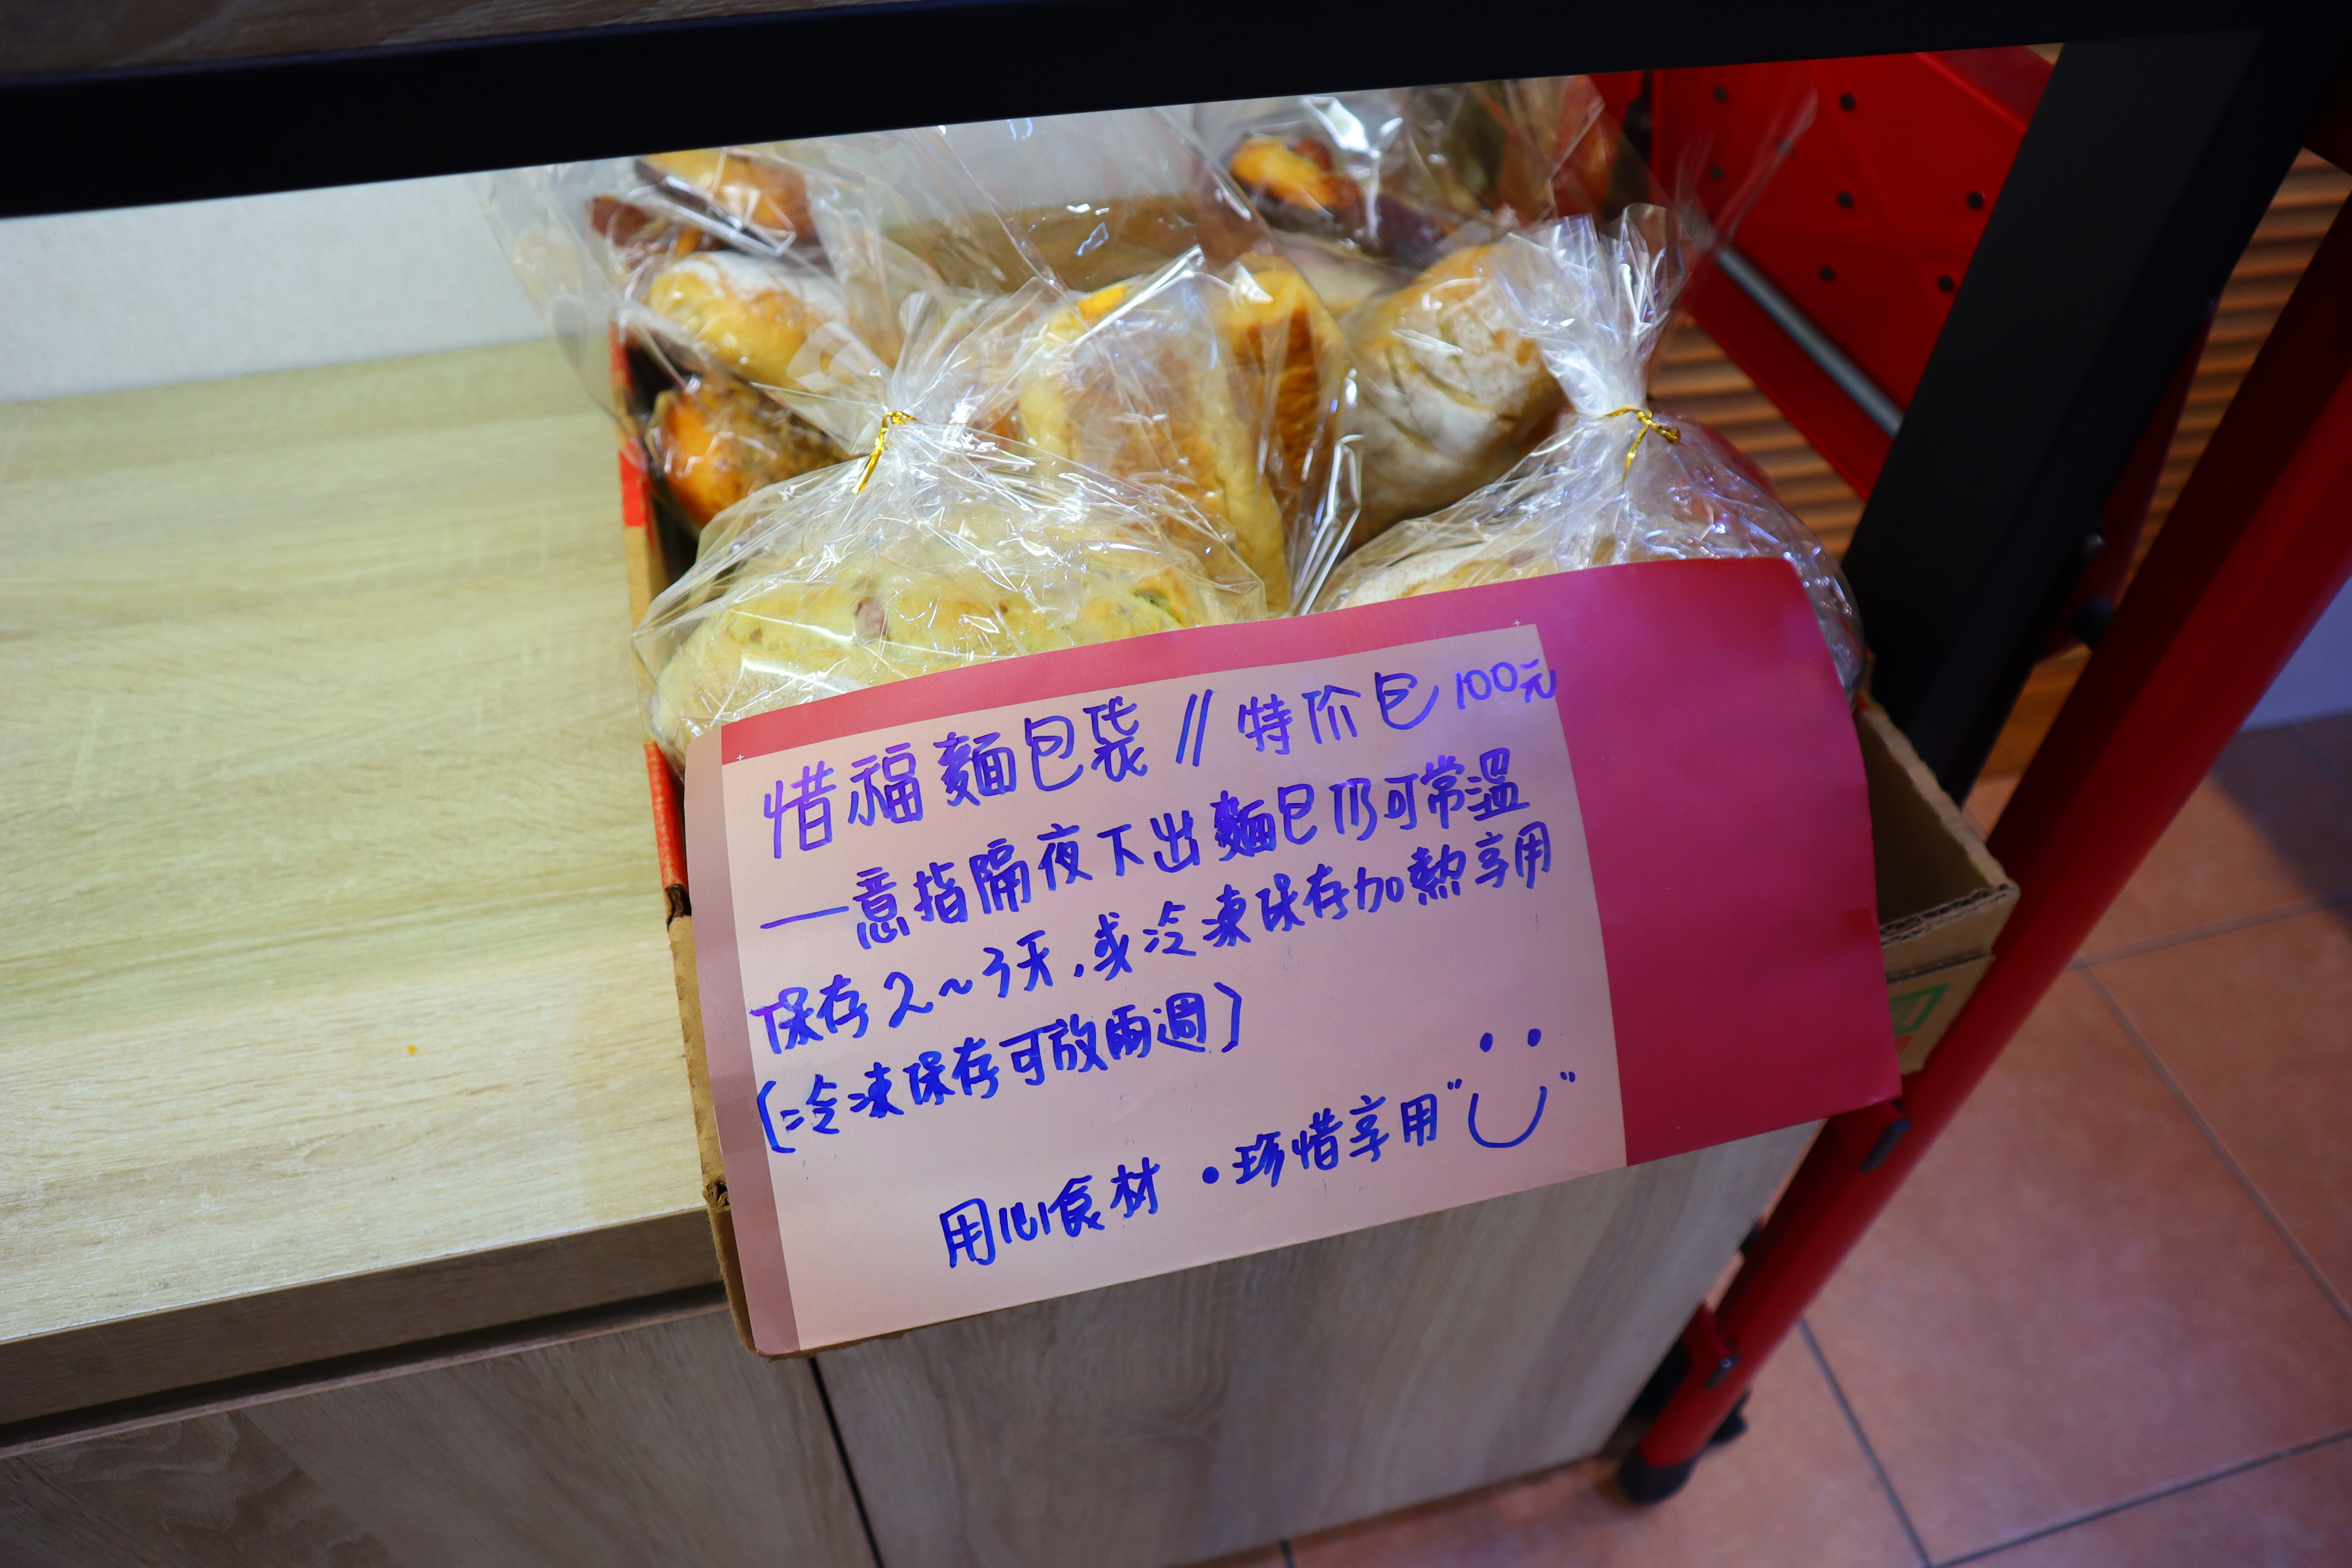 惜福麵包袋 // 特价包 100元
—意指隔夜下出麵包仍可常溫
保存2~3天,或冷凍保存加熱享用
(冷凍保存可放兩週)
用心食材・珍惜享用"